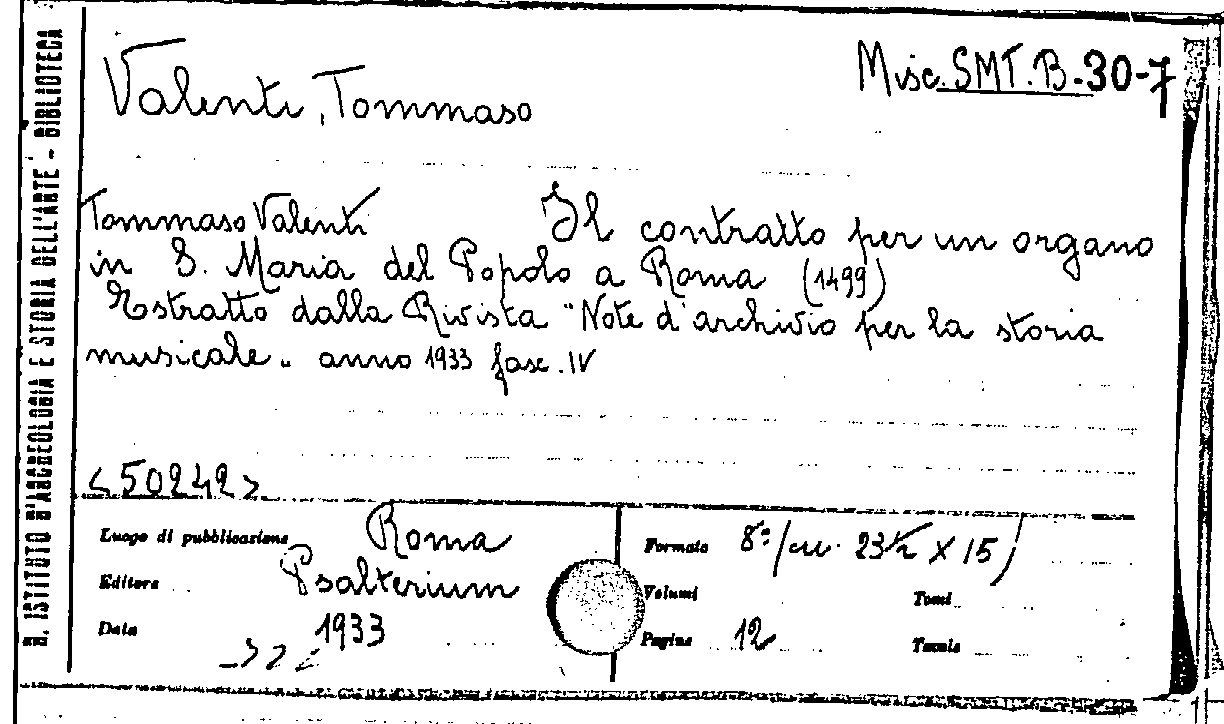 R. ISTITUTO D'ARCHEOLOGIA E STORIA DELL'ARTE - BIBLIOTECA
Valenti, Tommaso
Misc. SMT. B-30-7
Tommaso Valenti Il contratto per un organo
in S. Maria del Popolo a Roma (1499)
Estratto dalla Rivista "Note d'archivio per la storia
musicale" anno 1933 fasc. IV
<50242>
Luogo di pubblicazione Roma
Editore Psalterium
Data 1933
Formato 8º (cm. 23½ X 15)
Volumi Tomi
Pagine 12 Tavole